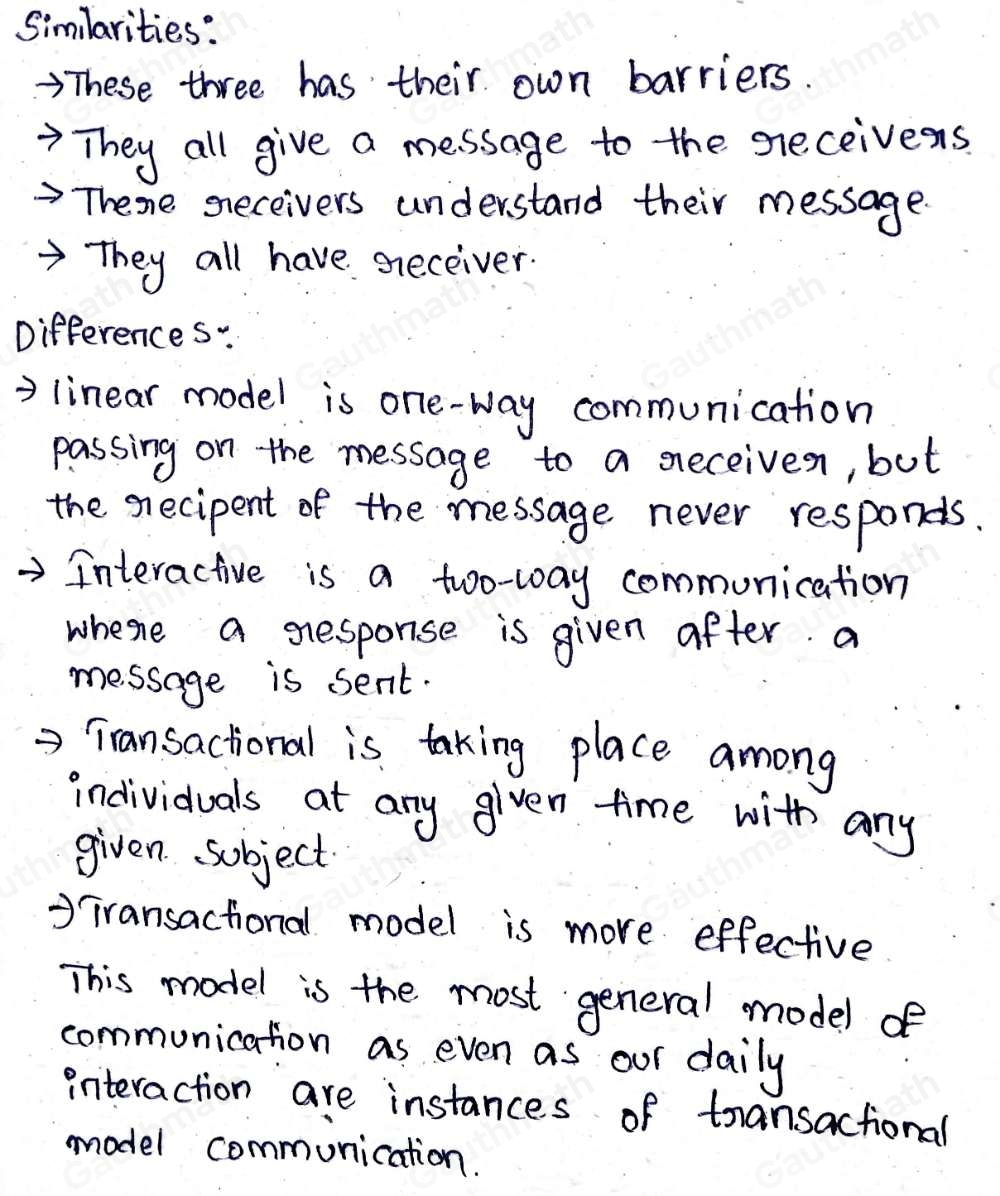 Similarities:
→These three has their own barriers.
→They all give a message to the receivers
→There receivers understand their message.
→ They all have receiver.
Differences:
→ linear model is one-way communication
passing on the message to a receiver, but
the recipent of the message never responds.
→ Interactive is a two-way communication
where a response is given after a
message is sent.
→ Transactional is taking place among
individuals at any given time with any
given subject.
→Transactional model is more effective
This model is the most general model of
communication as even as our daily
interaction are instances of transactional
model communication.